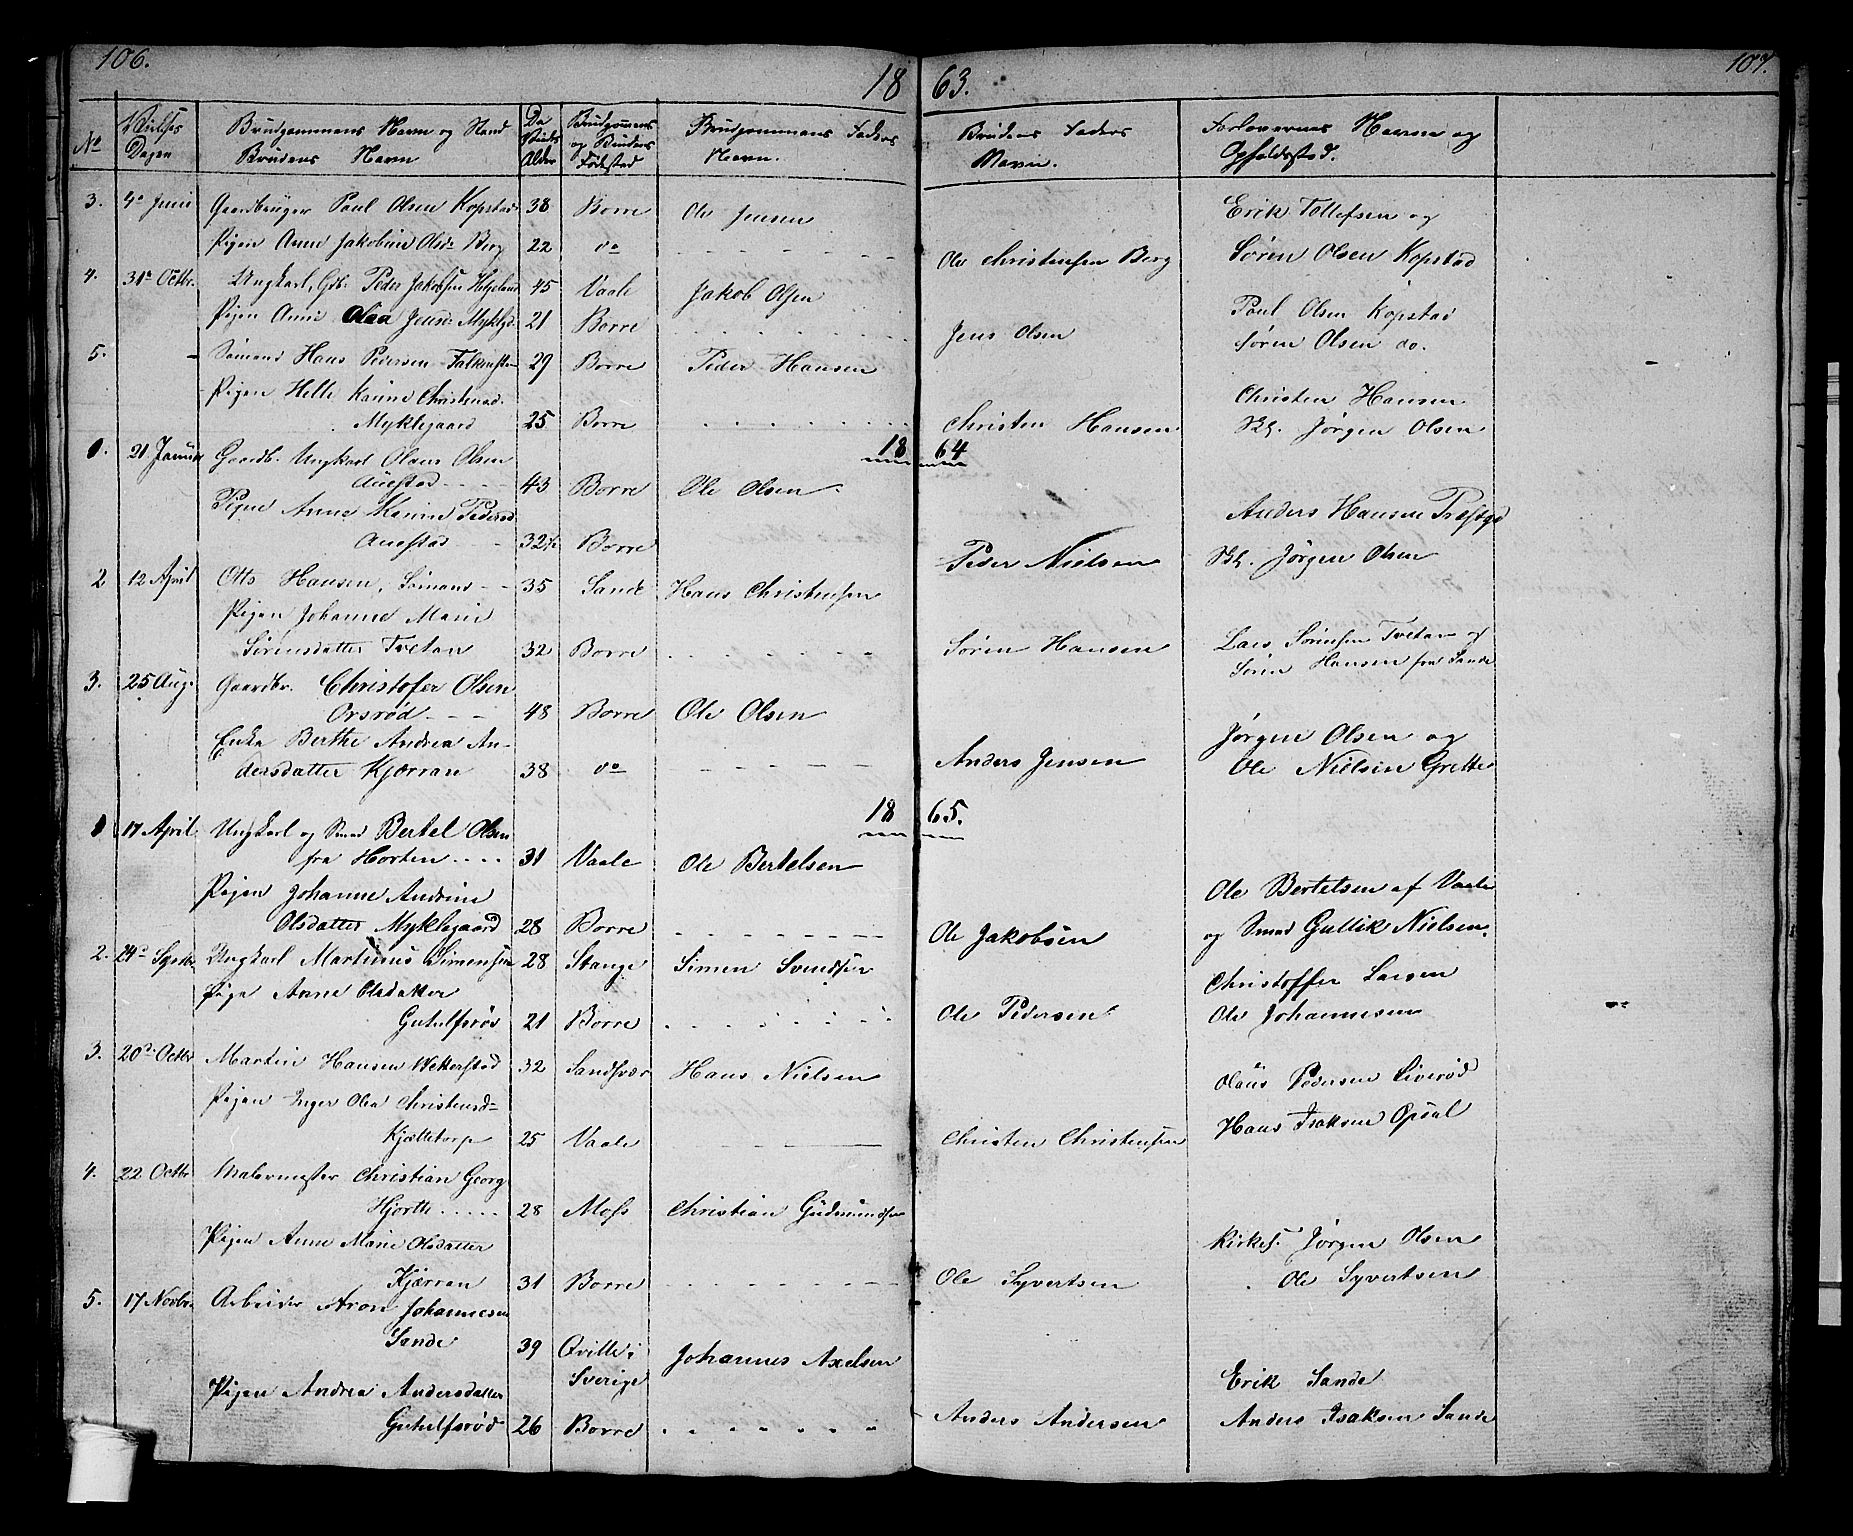 106.
18 63.
107.
No
Vielses Dagen
Brudgommens Navn og Stand
Brudens Navn
Da Vieds Alder
Brudgommens og Brudens Fødested
Brudgommens Faders Navn.
Brudens Faders Navn.
Forlovernes Navne og Opholdssted.
3. 4de Juni Gaardbruger Paul Olsen Kopstad 38 Borre Ole Jensen Erik Tollefsen og
Pigen Anne Jakobine Olsd. Berg 22 do Ole Christensen Berg Søren Olsen Kopstad
4. 31te Octbr. Ungkarl, Gdb. Peder Jakobsen Helgeland 45 Vaale Jakob Olsen Paul Olsen Kopstad
Pigen Anne Olea Jensd. Myklgd 21 Borre Jens Olsen Søren Olsen do.
5. - Sømand Hans Pedersen Falkensten 29 Borre Peder Hansen Christen Hansen
Pigen Helle Karine Christensd.
Myklegaard 25 Borre Christen Hansen Kl. Jørgen Olsen
18 64
1. 21 Januar Gaardb. Ungkarl Olaus Olsen
Auestad 43 Borre Ole Olsen Anders Hansen Præstgd
Pigen Anne Karine Pedersd
Auestad 32½ Borre Peder Nielsen Kl. Jørgen Olsen
2 12 April Otto Hansen, Sømand 35 Sande Hans Christensen
Pigen Johanne Marie Lars Sørensen Tvetan og
Sørensdatter Tvetan 32 Borre Søren Hansen Søren Hansen fra Sande
3. 25 Aug. Gaardbr. Christofer Olsen
Orsrød 48 Borre Ole Olsen Jørgen Olsen og
Enke Berthe Andrea An-
dersdatter Kjærran 38 do Anders Jensen Ole Nielsen Grette
18 65.
1 17 April Ungkarl og Smed Bertel Olsen
fra Horten 31 Vaale Ole Bertelsen
Pigen Johanne Andrine Ole Bertelsen af Vaale
Olsdatter Myklegaard 28 Borre Ole Jakobsen og Smed Gullik Nielsen.
2. Ungkarl Martinus Simensen 28 Stange Simen Svendsen Christoffer Larsen
Pige Anne Olsdatter
Guhulfsrøs 21 Borre Ole Pedersen Ole Johannesen
3. 20de Octbr Martin Hansen Wekerstad 32 Sandsvær Hans Nielsen Olaus Pedersen Liverød
Pigen Inger Olea Christensd=
Kjøltetorp 25 Vaale Christen Christensen Hans Isaksen Opsal
4. 22 Octbr Malermester Christian Georg
Hjorth 28 Moss Christian Gudmundsen
Pigen Anne Marie Olsdatter Kirkes. Jørgen Olsen
Kjærran 31 Borre Ole Syvertsen Ole Syvertsen
5. 17 Novbr Arbeider Aron Johannesen
Sande 39 Qville i Sverige Johannes Axelsen Erik Sande
Pigen Andrea Andersdatter
Guhulfsrød 26 Borre Anders Andersen Anders Isaksen Sande